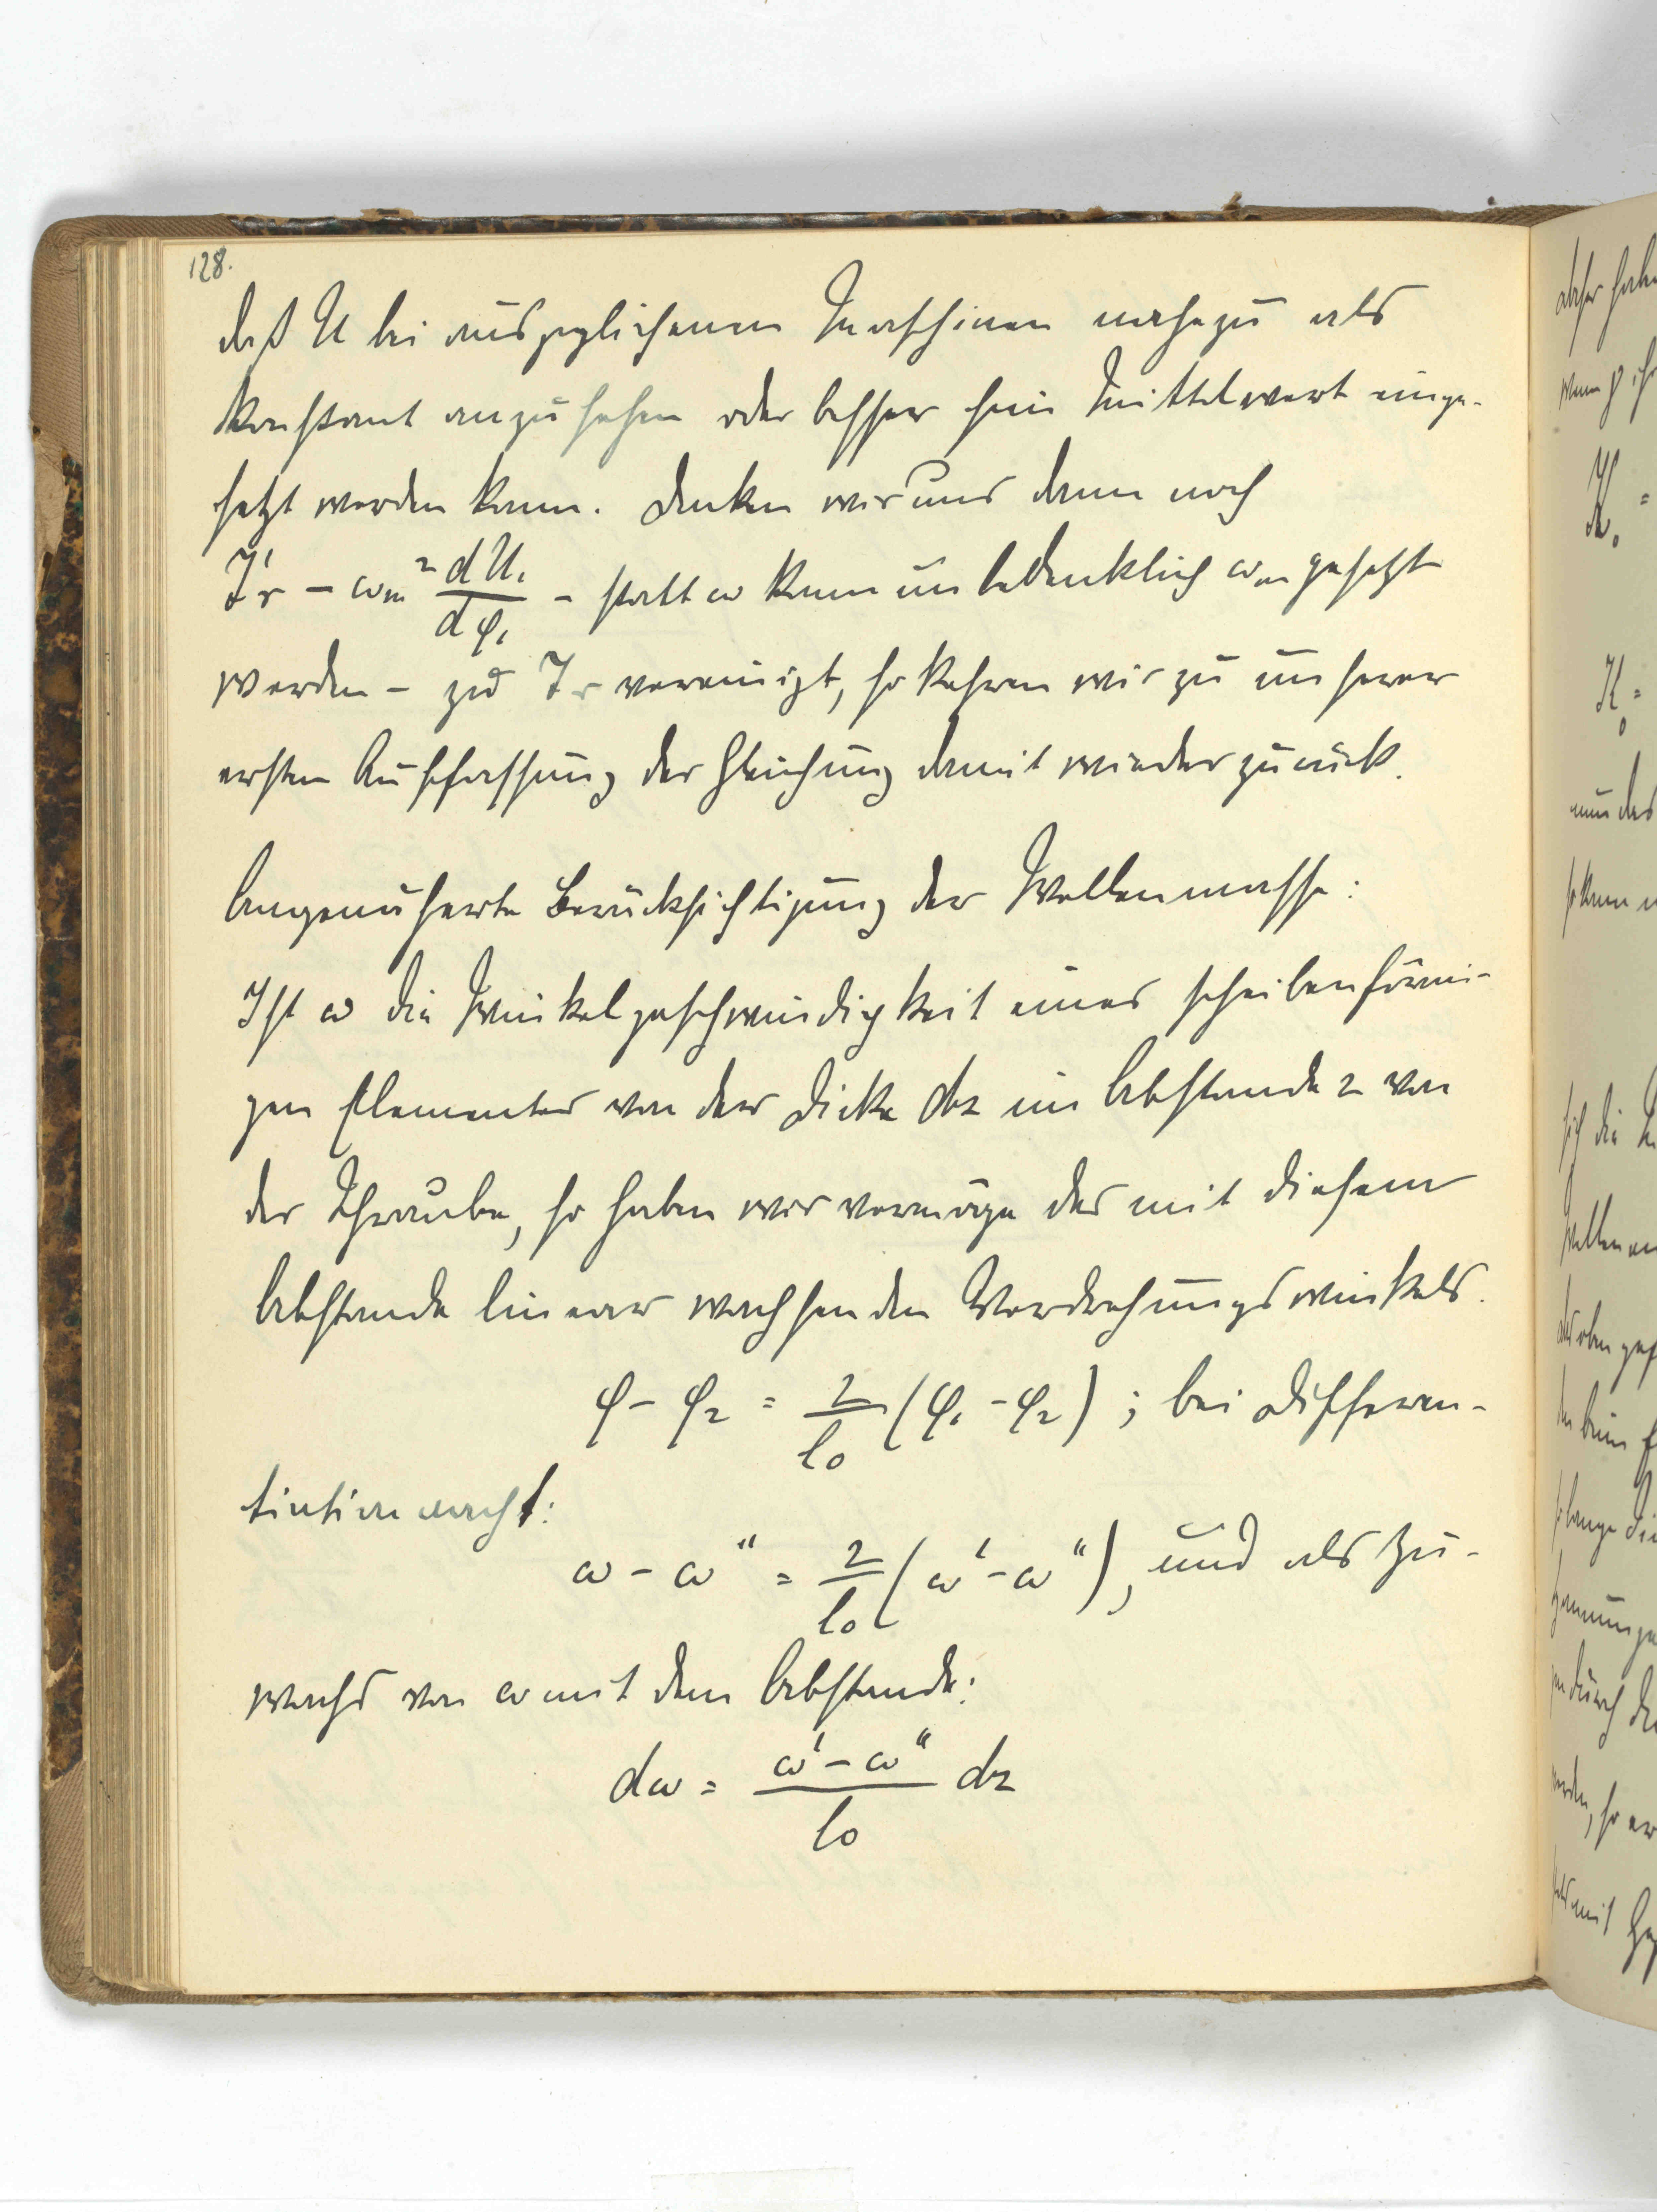 128.
daß U bei ausgeglichenen Maschinen nahezu als
konstant anzusehen oder besser sein Mittelwert einge-
setzt werden kann. Denken wir uns dann noch
J'r - ωm² dU₁/dφ₁ - statt ω kann unbedenklich ωm gesetzt
werden - zu Jr vereinigt, so kehren wir zu unserer
ersten Auffassung der Gleichung damit wieder zurück.
Angenäherte Berücksichtigung der Wellenmasse:
Ist ω die Winkelgeschwindigkeit eines scheibenförmi-
gen Elementes von der Dicke dz im Abstande z von
der Schraube, so haben wir vermöge des mit diesem
Abstande linear wachsenden Verdrehungswinkels.
φ - φ₂ = z/l₀ (φ₁ - φ₂) ; bei Differen-
tiation nach t:
ω - ω" = z/l₀ (ω' - ω"), und als Zu-
wachs von ω mit dem Abstande:
dω = (ω' - ω")/l₀ dz